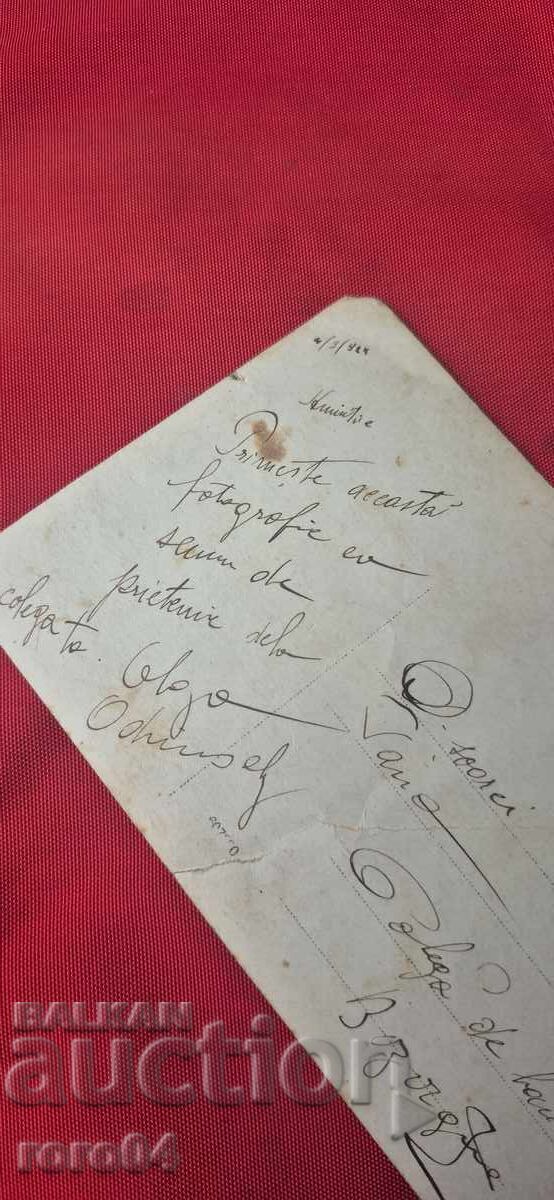 4/3/924
Amintire
Primește această
fotografie cu
semn de
prietenie dela
colega ta Olga
D-soarei
Colega de
BALKAN
auction
roro04